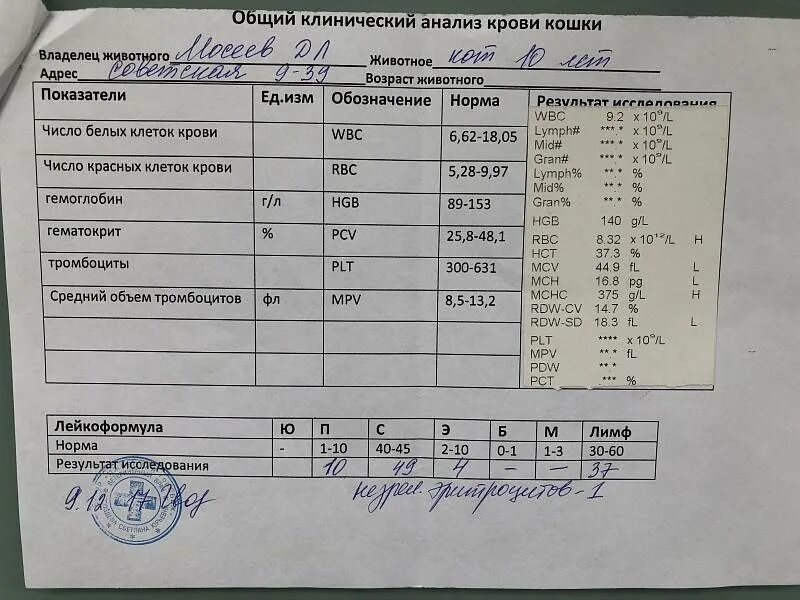 Общий клинический анализ крови кошки
Владелец животного Мосеев ДЛ Животное кот 10 лет
Адрес советская 9-39 Возраст животного
Показатели Ед.изм Обозначение Норма Результат исследования
Число белых клеток крови WBC 6,62-18,05
Число красных клеток крови RBC 5,28-9,97
гемоглобин г/л HGB 89-153
гематокрит % PCV 25,8-48,1
тромбоциты PLT 300-631
Средний объем тромбоцитов фл MPV 8,5-13,2
WBC 9.2 x 10⁹/L
Lymph# ***.* x 10⁹/L
Mid# ***.* x 10⁹/L
Gran# ***.* x 10⁹/L
Lymph% **.* %
Mid% **.* %
Gran% **.* %
HGB 140 g/L
RBC 8.32 x 10¹²/L H
HCT 37.3 %
MCV 44.9 fL L
MCH 16.8 pg L
MCHC 375 g/L H
RDW-CV 14.7 %
RDW-SD 18.3 fL L
PLT **** x 10⁹/L
MPV **.* fL
PDW **.*
PCT *** %
Лейкоформула Ю П С Э Б М Лимф
Норма - 1-10 40-45 2-10 0-1 1-3 30-60
Результат исследования 10 49 4 – – 37
9.12 незрел. эритроцитов-1